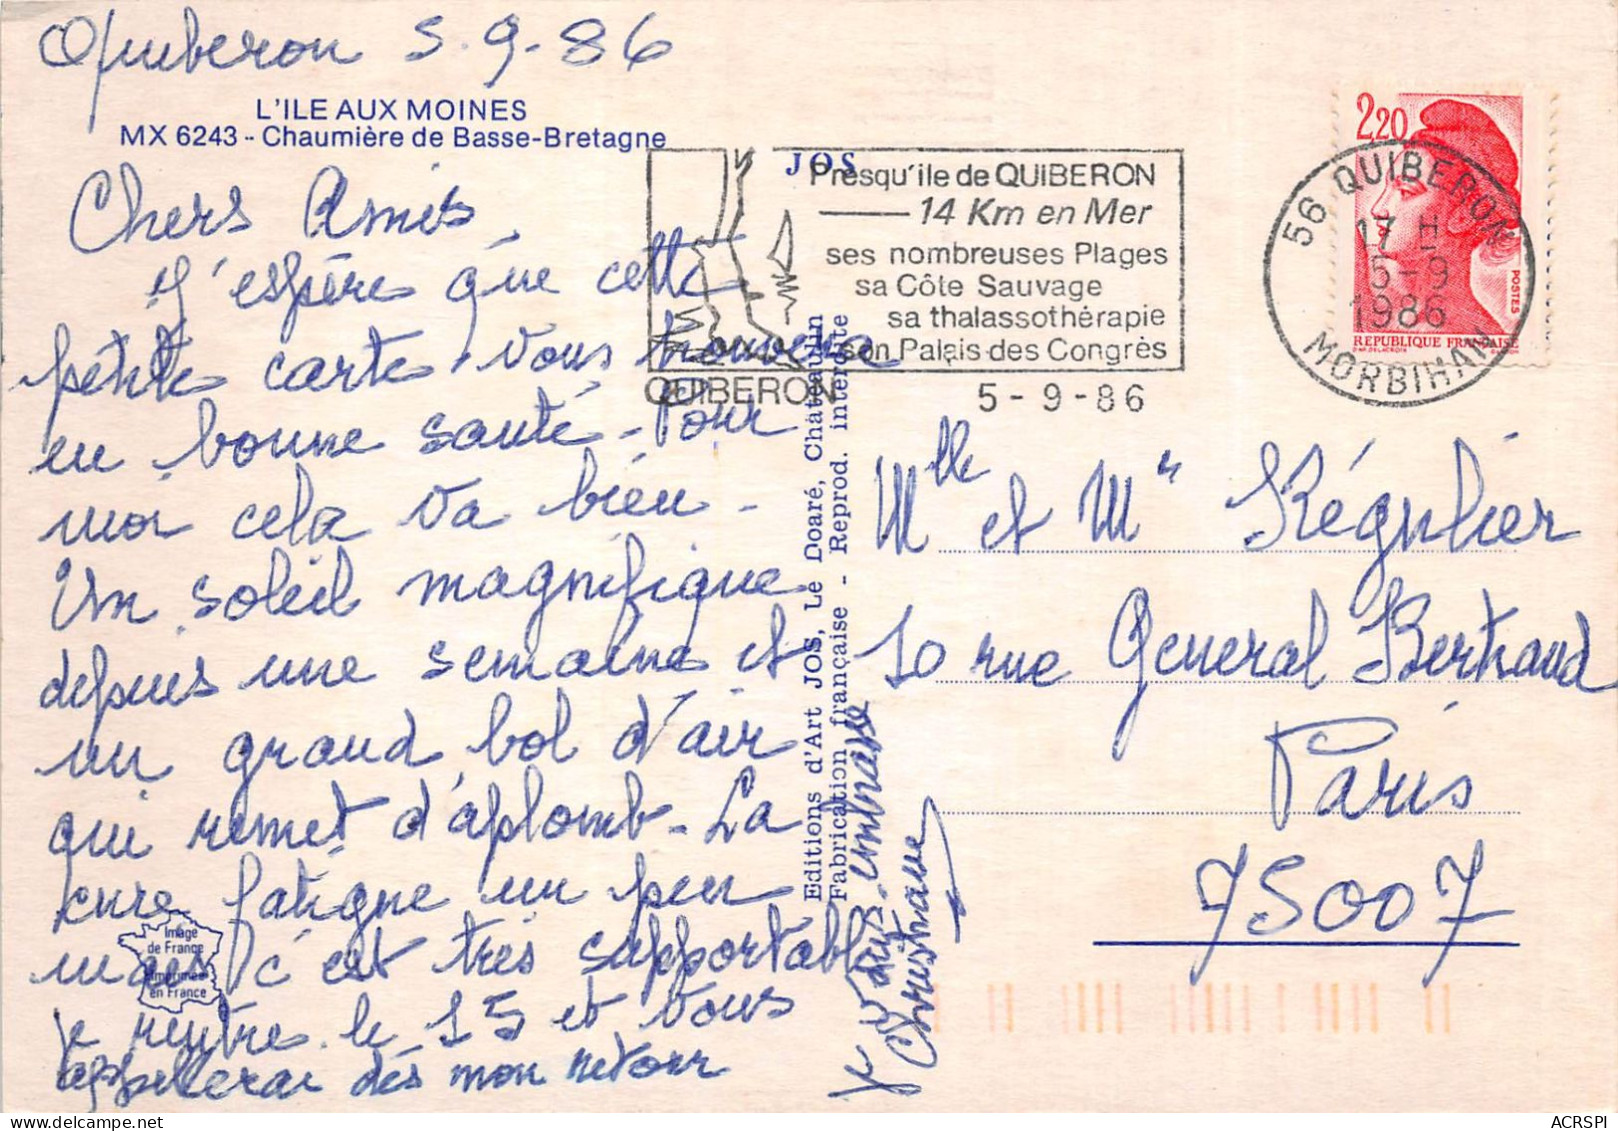 Quiberon 5.9.86
L'ILE AUX MOINES
MX 6243 - Chaumière de Basse-Bretagne
JOS
Chers Amis
J'espère que cette
petite carte vous trouvera
en bonne santé - Pour
moi cela va bien -
Un soleil magnifique
depuis une semaine et
un grand bol d'air
qui remet d'aplomb - La
cure fatigue un peu
mais c'est très supportable
je rentre le 15 et vous
appellerai dés mon retour
je vous embrasse
Christiane
Image
de France
imprimée
en France
Editions d'Art JOS, Le Doaré, Châteaulin
Fabrication française - Reprod. interdite
Presqu'ile de QUIBERON
14 Km en Mer
ses nombreuses Plages
sa Côte Sauvage
sa thalassothérapie
son Palais des Congrès
QUIBERON
5 - 9 - 86
56 QUIBERON
17 H
5-9
1986
MORBIHAN
2,20
POSTES
REPUBLIQUE FRANÇAISE
D'AP. DELACROIX
Mlle et Mr Régulier
10 rue General Bertrand
Paris
75007
ACRSPI